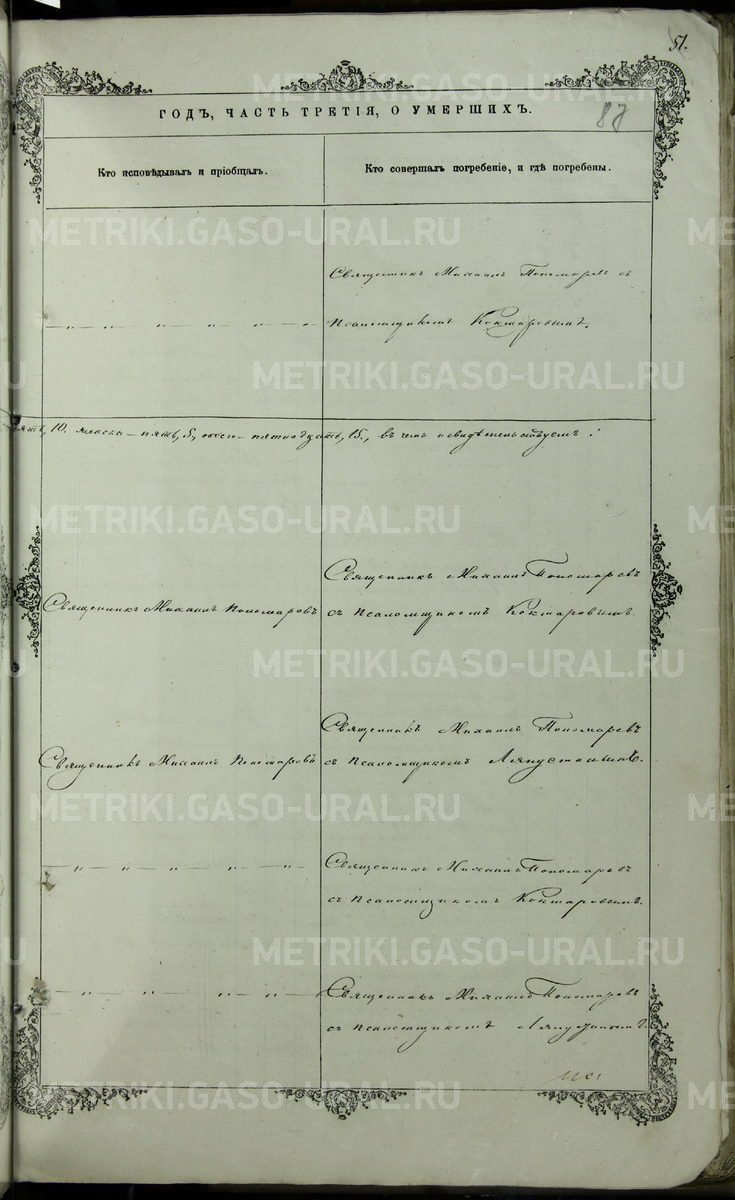 51.
ГОДЪ, ЧАСТЬ ТРЕТІЯ, О УМЕРШИХЪ.
87
Кто исповѣдывалъ и пріобщалъ.
Кто совершалъ погребеніе, и гдѣ погребены.
METRIKI.GASO-URAL.RU
Священникъ Михаилъ Пономаревъ съ
— „ — „ — „ — „ — „ —
псаломщикомъ Коктаровымъ.
10. женска — пять, 5, всего — пятнадцать, 15., въ чемъ и свидѣтельствуемъ:
Священникъ Михаилъ Пономаревъ
Священникъ Михаилъ Пономаревъ
съ псаломщикомъ Коктаровымъ.
Священникъ Михаилъ Пономаревъ
Священникъ Михаилъ Пономаревъ
съ псаломщикомъ Ляпустинымъ.
— „ — „ — „ — „ — „ —
Священникъ Михаилъ Пономаревъ
съ псаломщикомъ Коктаровымъ.
— „ — „ — „ — „ — „ —
Священникъ Михаилъ Пономаревъ
съ псаломщикомъ Ляпустинымъ.